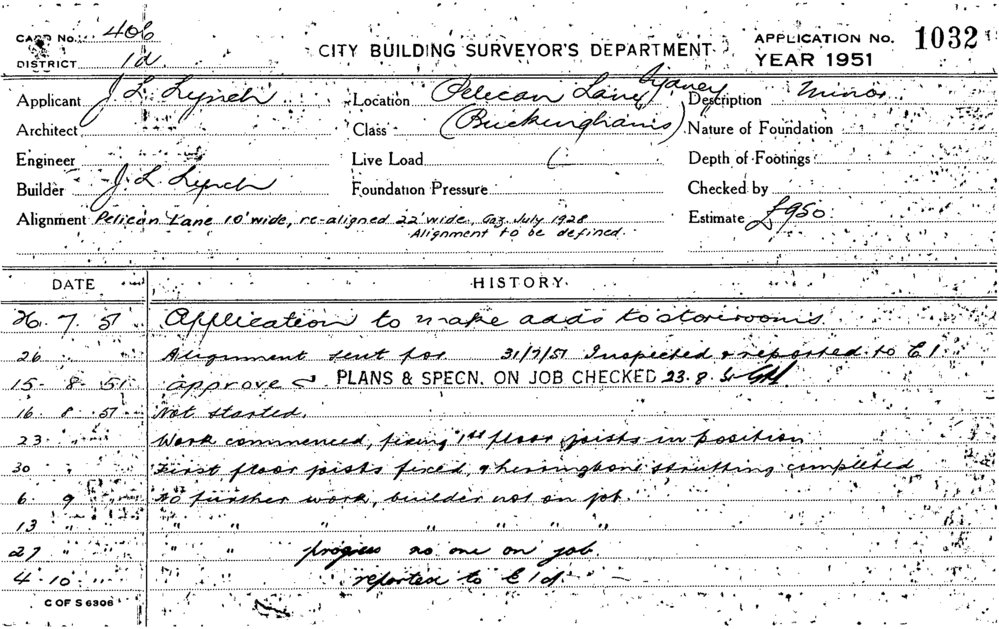 CARD No. 406
CITY BUILDING SURVEYOR'S DEPARTMENT
APPLICATION No. 1032
DISTRICT 1d
YEAR 1951
Applicant J. L. Lynch
Location Pelican Lane, Sydney
Description Minor
Architect
Class (Buckinghams)
Nature of Foundation
Engineer
Live Load
Depth of Footings
Builder J. L. Lynch
Foundation Pressure
Checked by
Alignment Pelican Lane 10' wide, re-aligned 22' wide Gaz. July 1928
Alignment to be defined.
Estimate £950
DATE HISTORY
26 7 51 Application to make adds to storerooms
26 Alignment sent for 31/7/51 Inspected & reported to
15 8 51 approve PLANS & SPECN. ON JOB CHECKED 23.8.51
16 8 51 Not started.
23 " Work commenced, fixing 1st floor joists in position
30 " First floor joists fixed & herringbone strutting completed
6 9 No further work, builder not on job
13 " " " " " " " "
27 " " " " progress no one on job
4 10 " reported to E/d.
C OF S 6306